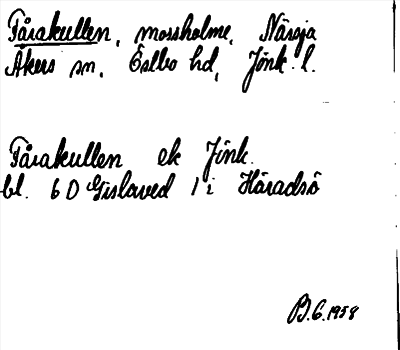 Fårakullen, mossholme, Näsoja
Åkers sn, Östbo hd, Jönk. l.
Fårakullen ek Jönk.
bl. 6D Gislaved 1 i Häradsö
B.G. 1958